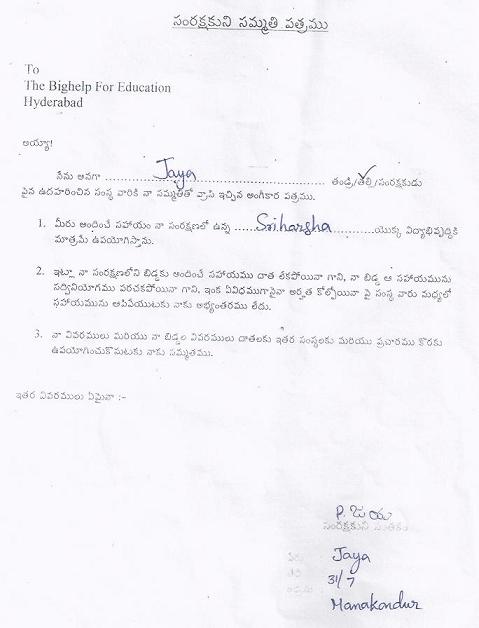 సంరక్షకుని సమ్మతి పత్రము
To
The Bighelp For Education
Hyderabad
అయ్యా!
నేను అనగా ......Jaya...... తండ్రి/తల్లి/సంరక్షకుడు
పైన ఉదహరించిన సంస్థ వారికి నా సమ్మతితో వ్రాసి ఇచ్చిన అంగీకార పత్రము.
1. మీరు అందించే సహాయం నా సంరక్షణలో ఉన్న ......Sriharsha......యొక్క విద్యాభివృద్దికి
మాత్రమే ఉపయోగిస్తాను.
2. ఇట్లా నా సంరక్షణలోని బిడ్డకు అందించే సహాయము దాత లేకపోయినా గాని, నా బిడ్డ ఆ సహాయమును
సద్వినియోగము పరచకపోయినా గాని, ఇంక ఏవిధముగానైనా అర్హత కోల్పోయినా పై సంస్థ వారు మధ్యలో
సహాయమును ఆపివేయుటకు నాకు అభ్యంతరము లేదు.
3. నా వివరములు మరియు నా బిడ్డల వివరములు దాతలకు ఇతర సంస్థలకు మరియు ప్రచారము కొరకు
ఉపయోగించుకొనుటకు నాకు సమ్మతము.
ఇతర వివరములు ఏమైనా :-
P. జయ
సంరక్షకుని సంతకం
పేరు Jaya
31/7
Manakondur